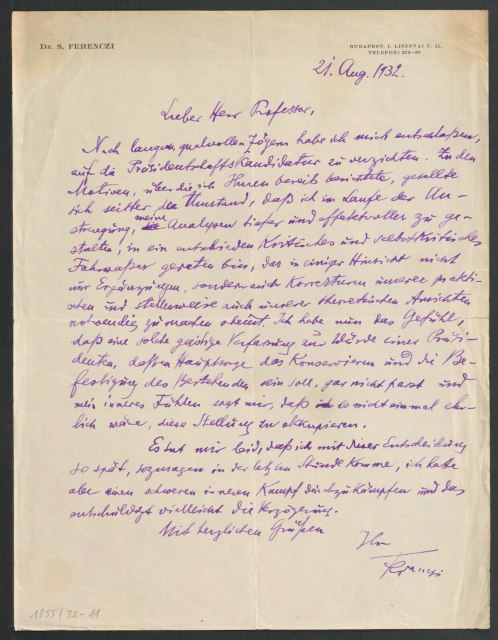 DR. S. FERENCZI
BUDAPEST, I. LISZNYAI U. 11.
TELEFON:
21. Aug. 1932.
Lieber Herr Professor,
Nach langem, qualvollem Zögern habe ich mich entschlossen,
auf die Präsidentschaftskandidatur zu verzichten. Zu den
Motiven, über die ich Ihnen bereits berichtete, gesellte
sich seither der Umstand, daß ich im Laufe der An-
strengung, meine Analysen tiefer und effektvoller zu ge-
stalten, in ein entschieden kritisches und selbstkritisches
Fahrwasser geraten bin, das in einiger Hinsicht nicht
nur Ergänzungen, sondern auch Korrekturen unserer prakti-
schen und stellenweise auch unserer theoretischen Ansichten
notwendig zu machen scheint. Ich habe nun das Gefühl,
daß eine solche geistige Verfassung zur Würde eines Präsi-
denten, dessen Hauptsorge das Konservieren und die Be-
festigung des Bestehenden sein soll, gar nicht passt und
mein inneres Fühlen sagt mir, daß es nicht einmal ehr-
lich wäre, diese Stellung zu okkupieren.
Es tut mir leid, daß ich mit dieser Entscheidung
so spät, sozusagen in der letzten Stunde komme, ich hatte
aber einen schweren inneren Kampf durchzukämpfen und das
entschuldigt vielleicht die Verzögerung.
Mit herzlichen Grüßen
Ihr
Ferenczi
1955/32-11